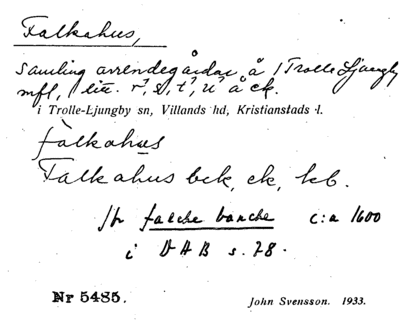 Falkahus,
samling arrendegårdar å 1 Trolle Ljungby
mfl, litt. r, s, t, u å ck.
i Trolle-Ljungby sn, Villands hd, Kristianstads l.
falkahus
Falkahus bck, ck, kb.
falche banche c:a 1600
i DAB s. 78.
Nr 5485.
John Svensson. 1933.